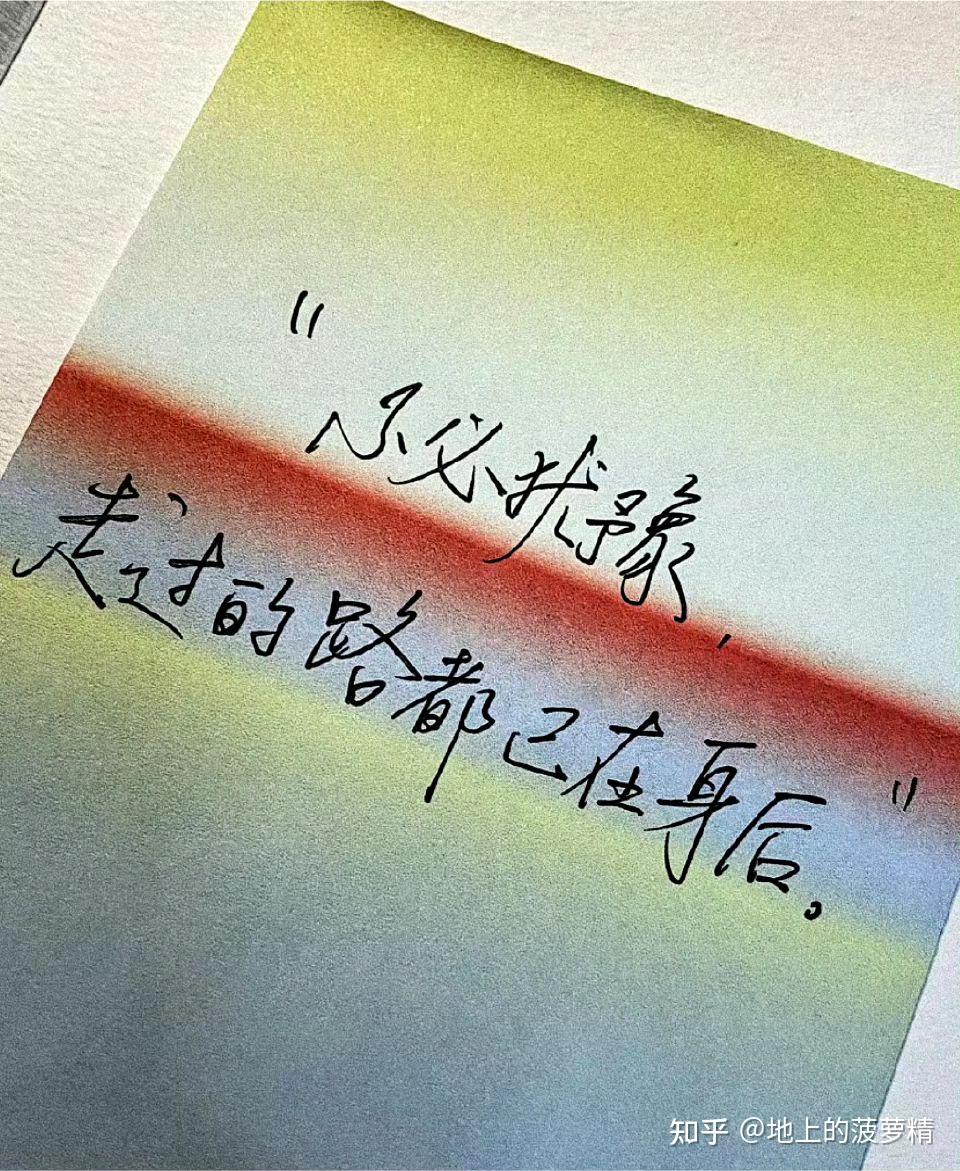 "
不必犹豫,
走过的路都已在身后。"
知乎 @地上的菠萝精